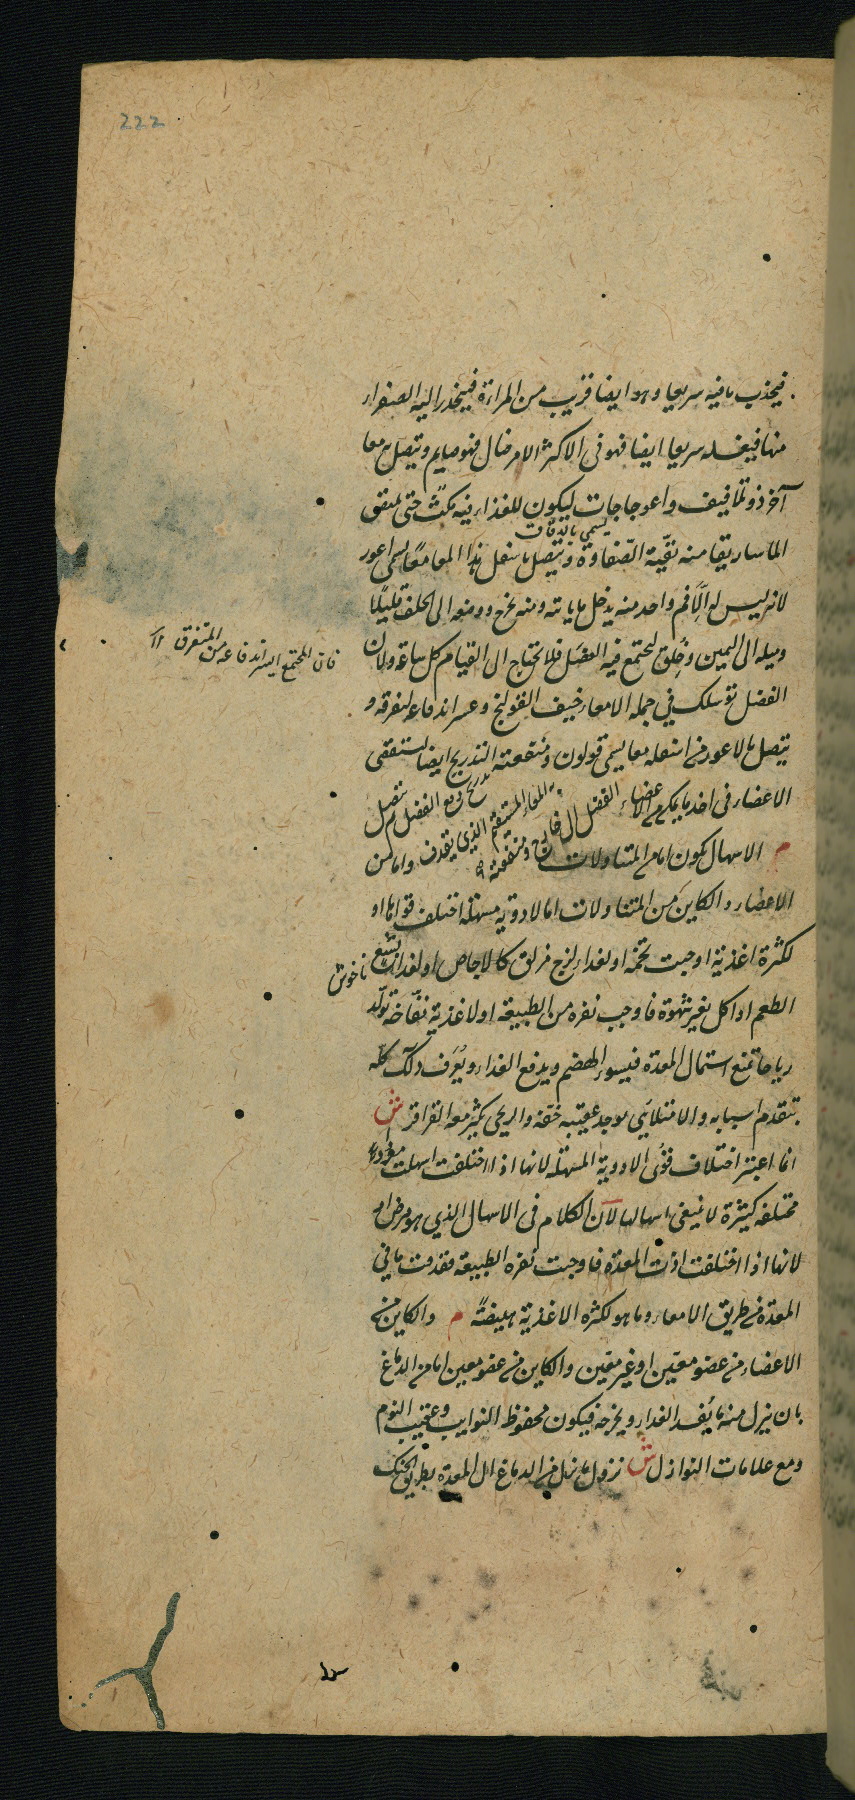 222
فيجذب ما فيه سريعا وهو ايضا قريب من المرارة فينحدر اليه الصفراء
منها فيغسله سريعا ايضا فهو في الاكثر الامر خال فهو صايم ويتصل به معا
آخر ذو تلافيف واعوجاجات ليكون للغذاء فيه مكث حتى
يسمى بالدقاق
الماساريقا منه بقية الصفاوة ويتصل باسفل هذا المعا معا يسمى اعور
لانه ليس له الا فم واحد منه يدخل ما ياتيه ومنه يخرج ووضعه الى الخلف قليلا
وميله الى اليمين وخلق ليجتمع فيه الفضل فلا يحتاج الى القيام كل ساعة ولان
فان المجتمع ايسر اندفاعه من المتفرق
الفضل لو سلك في جملة الامعاء خيف القولنج وعسر اندفاعه لتفرقه و
يتصل بالاعور من اسفله معا يسمى قولون ومنفعته التدريج ايضا لتستقصى
الاعضاء في اخذ ما يمكن
م الاسهال يكون اما من المتناولات واما من
الاعضاء والكاين من المتناولات اما لادوية مسهلة اختلف قواها او
لكثرة اغذية اوجبت تخمة او لغذاء لزج مزلق كالاجاص او لغذاء بشع
ناخوش
الطعم او اكل بغير شهوة فاوجب نفرة من الطبيعة او لاغذية نفاخة تولد
رياحا تمنع اشتمال المعدة فيسوء الهضم ويدفع الغذاء ويعرف ذلك كله
بتقدم اسبابه والامتلائي يوجد عقيبه خفة والريحي يكثر معه القراقر ش
انما اعتبر اختلاف قوى الادوية المسهلة لانها اذا اختلفت اسهلت
مختلفة كثيرة لا ينبغي اسهالها لان الكلام في الاسهال الذي هو مرض او
لانها اذا اختلفت اذت المعدة فاوجبت نفرة الطبيعة فقذفت ما في
المعدة من طريق الامعاء وما هو لكثرة الاغذية هيضة م والكاين من
الاعضاء من عضو معين او غير معين والكاين من عضو معين اما من الدماغ
بان ينزل منه ما يفسد الغذاء ويخرجه فيكون محفوظ النوايب وعقيب النوم
ومع علامات النوازل ش نزول ما ينزل من الدماغ الى المعدة بطريق الحنك